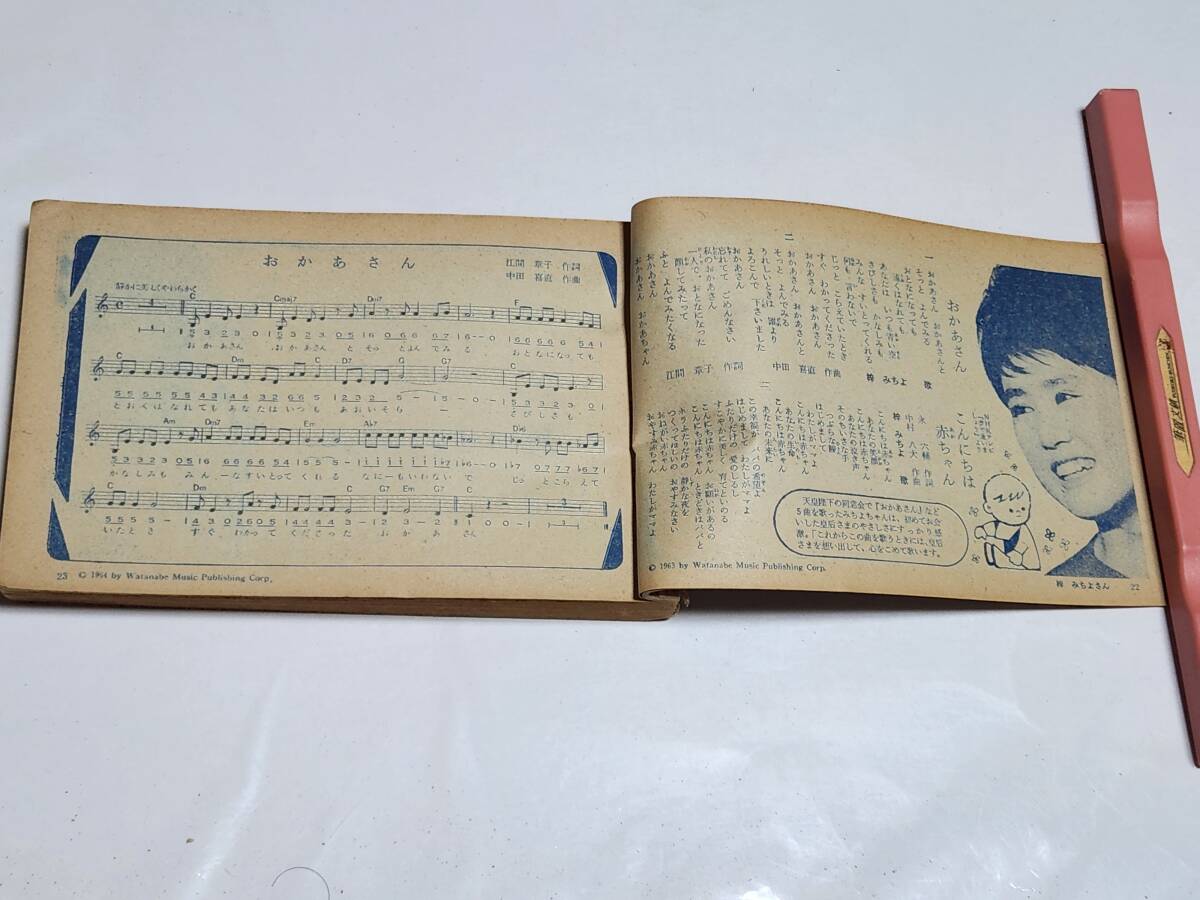 おかあさん
江間 章子 作詞
中田 喜直 作曲
C
Cmaj7
Dm7
F
おかあさん おかあさん と そっ とよん でみる おとなになっても
C
Dm
C
D7
G
G7
C
とおくはなれても あなたはいつも あおいそら ー さびしさも
Am
Dm
G7
Em
Ab7
かなしみも みんーなすいとってくれる なにーもいわないで じっ とこらえて
C
Dm
C
G7
Em
G7
C
いたとき すぐ わかって くださった おかあさん
23 © 1964 by Watanabe Music Publishing Corp.
おかあさん
梓 みちよ 歌
一
おかあさん おかあさんと
そっと よんでみる
おとなになっても
遠くはなれても
あなたは いつも 青い空
さびしさも かなしみも
みんな すいとってくれる
何も 言わないで
じっと こらえていたとき
すぐ わかってくださった
おかあさん
二
おかあさん おかあさんと
そっと よんでみる
うれしいときは 誰より
よろこんで 下さいました
おかあさん
忘れてて ごめんなさい
私のおかあさん
一人で、おとなになった
顔してみたって
ふと よんでみたくなる
おかあさん
おかあさん おかあちゃん
江間 章子 作詞
中田 喜直 作曲
こんにちは
赤ちゃん
永 六輔 作詞
中村 八大 作曲
梓 みちよ 歌
こんにちは赤ちゃん
あなたの笑顔
こんにちは赤ちゃん
あなたの泣き声
そのちいさな手
つぶらな瞳
はじめまして
わたしがママよ
こんにちは赤ちゃん
あなたの生命
こんにちは赤ちゃん
あなたの未来に
この幸福が パパの希望よ
はじめまして わたしがママよ
二
ふたりだけの 愛のしるし
すこやかに美しく 育てといのる
こんにちは赤ちゃん お願いがあるの
こんにちは赤ちゃん ときどきはパパと
ホラふたりだけの 静かな夜を
つくってほしいの おやすみなさい
おねがい赤ちゃん
おやすみ赤ちゃん わたしがママよ
天皇陛下の同窓会で『おかあさん』など
5曲を歌ったみちよちゃんは、初めてお会
いした皇后さまのやさしさにすっかり感
激。「これからこの曲を歌うときには、皇后
さまを想い出して、心をこめて歌います。
© 1963 by Watanabe Music Publishing Corp.
梓 みちよさん
22